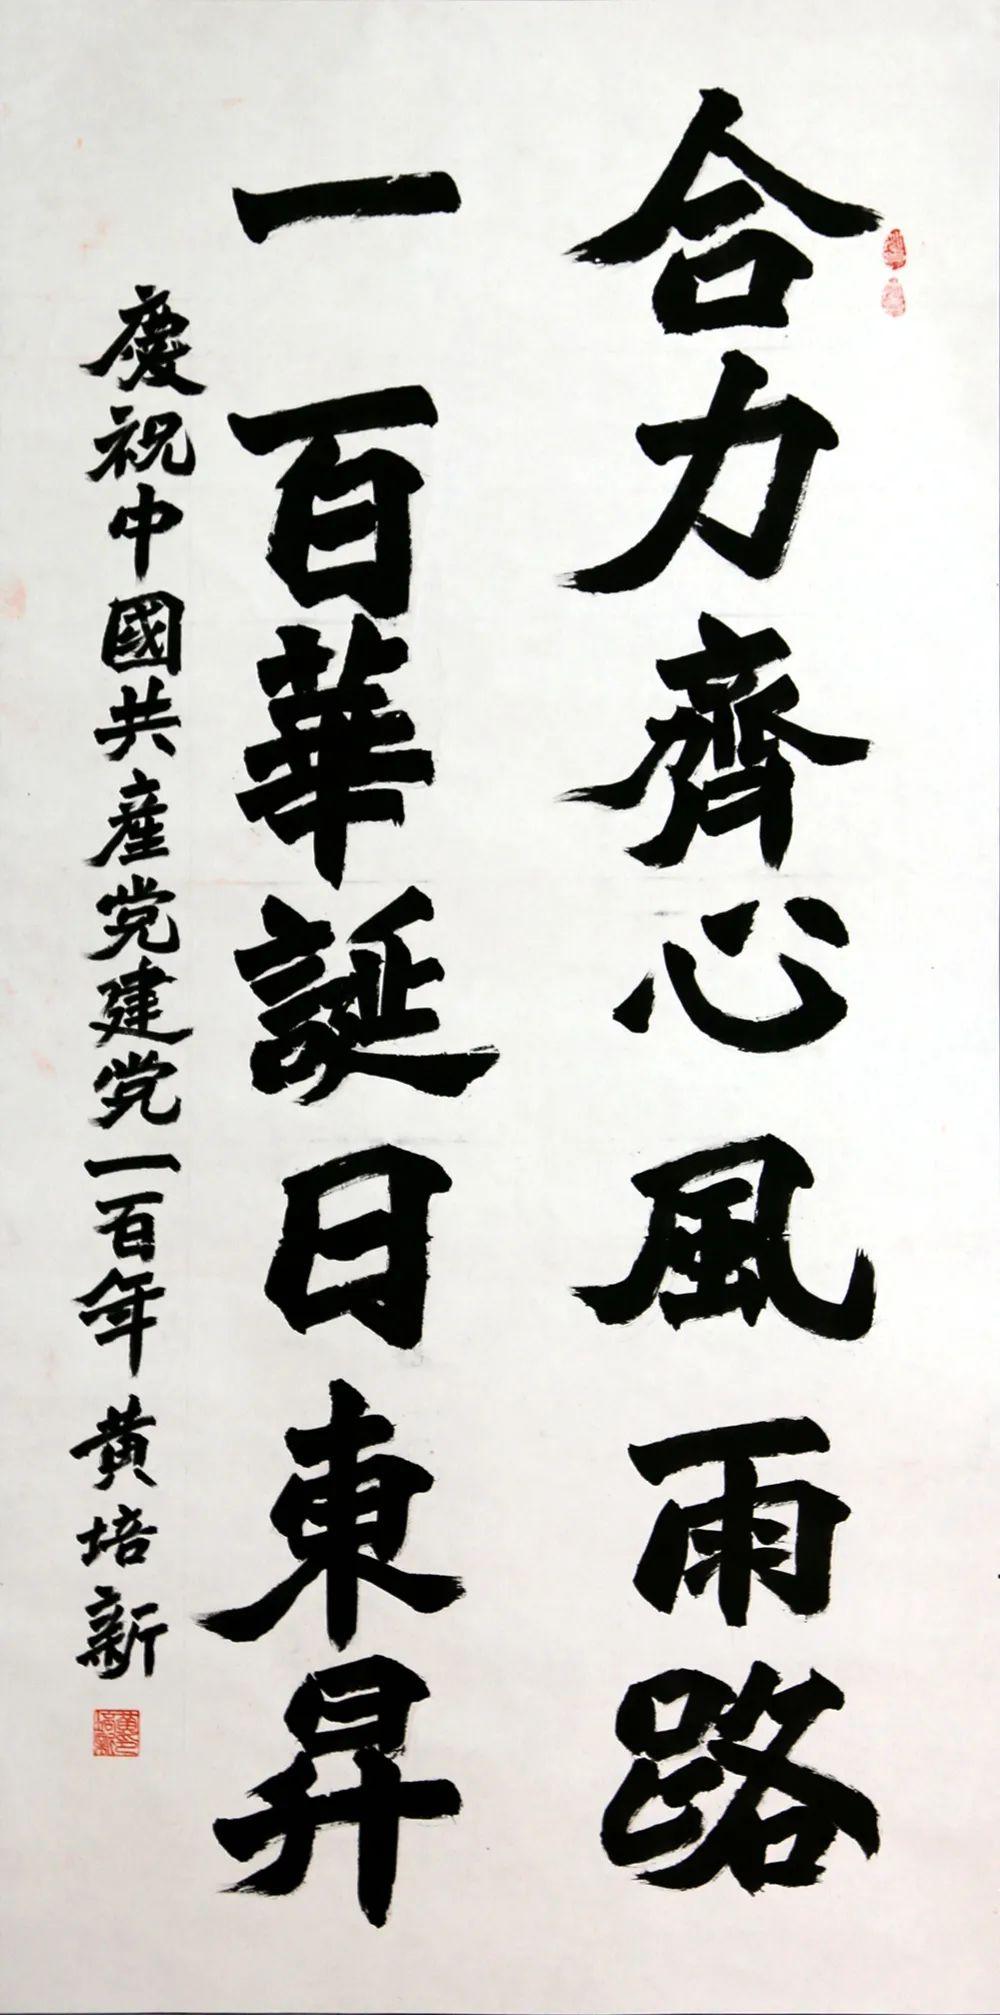 合力齊心風雨路
一百華誕日東昇
慶祝中國共產党建党一百年 黄培新